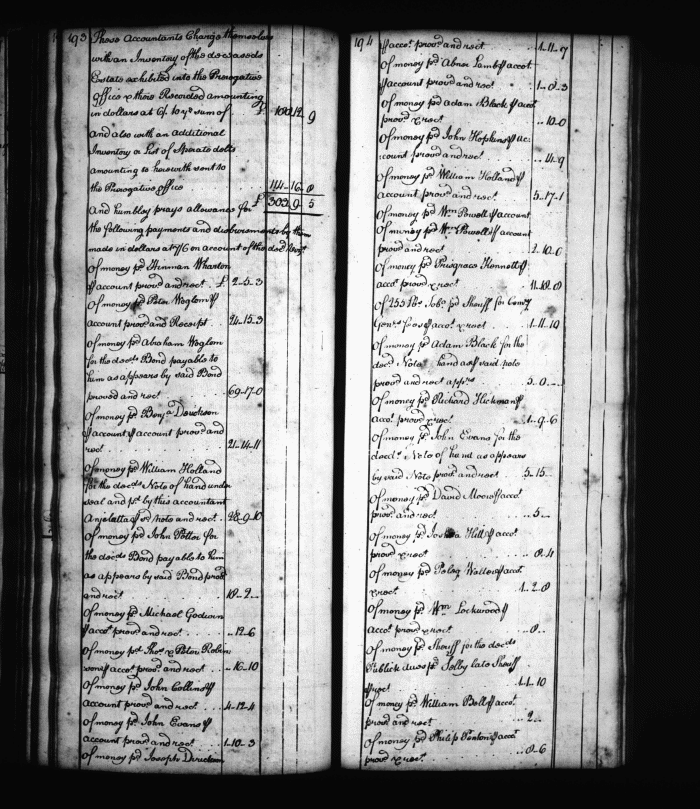 193
These Accountants Charge themselves
with an Inventory of the deceaseds
Estate exhibited into the Prerogative
Office & there Recorded amounting
in dollars at 6/ to ye sum of £
And also with an Additional
Inventory or List of Sperate debts
amounting to herewith sent to
the Prerogative office 114-16-8
£ 303 9 5
And humbley prays allowance for
the following payments and disbursements by them
made in dollars at 7/6 on account of the decd Viz.
Of money pd Hinman Wharton
℔ account provd and rect . £ 2-5-3
Of money pd Peter
account provd and Receipt . 24-15-3
Of money pd Abraham
for the decds Bond payable to
him as appears by said Bond
proved and rect 69-17-0
Of money pd Benja
℔ account ℔ account provd and
rect 21-14-11
Of money pd William Holland
for the decds Note of hand under
seal and pd by this accountant
note and rect . 28-9-10
Of money pd John Potter for
the decds Bond payable to him
as appears by said Bond provd
and rect 18-2-
Of money pd Michael Godwin
℔ acct provd and rect . . . -.12-6
Of money pd Thos & Peter Robin
sons ℔ acct provd and rect . . -16-10
Of money pd John Collins ℔
account provd and rect . . 4-12-4
Of money pd John Evans ℔
account provd and rect . . 1-10-3
Of money pd Joseph
194
℔ acct provd and rect 1-11-7
Of money pd Abner Lamb ℔ acct
℔ account provd and rect . 1-0-3
Of money pd Adam Black ℔ acct
provd & rect .. 10.0
Of money pd John Hopkins ℔ ac
count provd and rect . . 14-9
Of money pd William Holland ℔
account provd and rect . . 5-17-1
Of money pd Wm Powell ℔ account
Of money pd Wm Powell ℔ account
provd and rect 2-10-0
Of money pd
acct provd & rect 11-18-8
Of 255 lbs Tobo pd Sheriff for
℔ acct & rect . . 1-11-10
Of money pd Adam Black for the
decds Note of hand as ℔ said note
provd and rect apprs . . 5-0-
Of money pd Richard Hickman ℔
acct provd & rect . 1-9-6
Of money pd John Evans for the
decds Note of hand as appears
by said Note provd and rect . . 5-15.
Of money pd David Moore ℔ acct
provd and rect . . 5-
Of money pd Joshua Hill ℔ acct
provd & rect . . . 8.4
Of money pd Peleg Walter ℔ acct
& rect . . 1-2-8
Of money pd Wm Lockwood ℔
acct provd & rect . . . 8-
Of money pd Sheriff for the decds
Publick dues pd Selby late Sheriff
℔ rect . . 1-1-10
Of money pd William Bell ℔ acct
provd and rect . . . 2-
Of money pd Philip ℔ acct
provd & rect . . 8-6